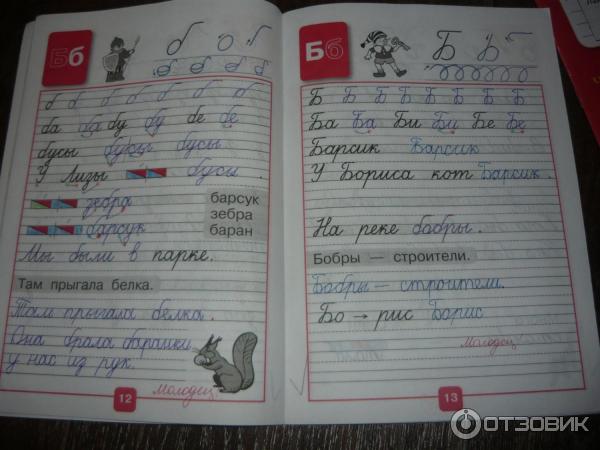 Бб
б о г
б б б б б б б б
ба ба бу бу бе бе
бусы бусы бусы
У Лизы бусы.
зебра
барсук
барсук
зебра
баран
Мы были в парке.
Там прыгала белка.
Там прыгала белка.
Она брала баранки
у нас из рук.
Молодец.
12
Бб
Б
Б Б Б Б Б Б Б Б
Ба Ба Би Би Бе Бе
Барсик Барсик
У Бориса кот Барсик.
На реке бобры.
Бобры — строители.
Бобры — строители.
Бо → рис Борис
Молодец
13
ОТЗОВИК